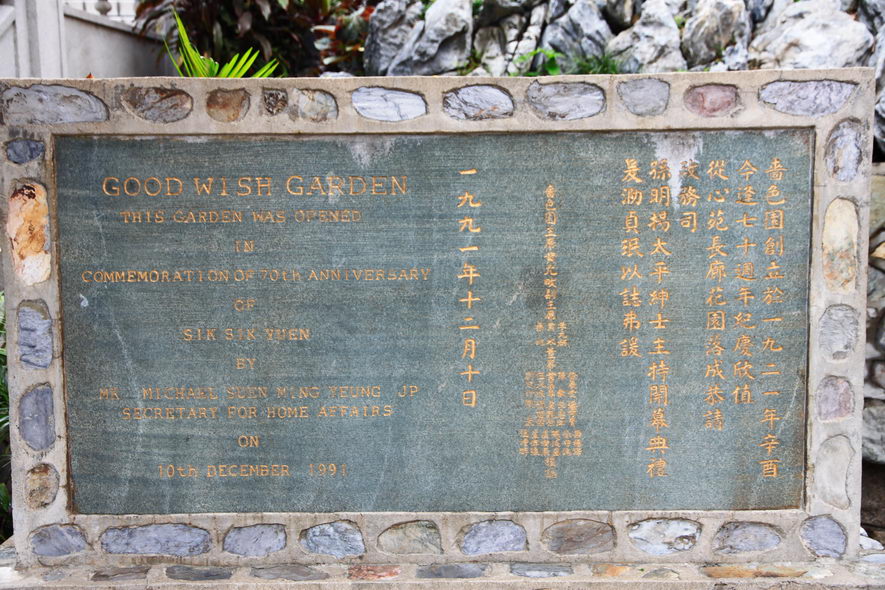 GOOD WISH GARDEN
THIS GARDEN WAS OPENED
IN
COMMEMORATION OF 70th ANNIVERSARY
OF
SIK SIK YUEN
BY
MR. MICHAEL SUEN MING YEUNG JP
SECRETARY FOR HOME AFFAIRS
ON
10th DECEMBER 1991
嗇色園創立於一九二一年辛酉
今逢七十週年紀慶欣值
從心苑長廊花園落成恭請
政務司
孫明揚太平紳士主持開幕典禮
爰泐貞珉以誌弗諼
嗇色園主席黃允畋副主席
一九九一年十二月十日